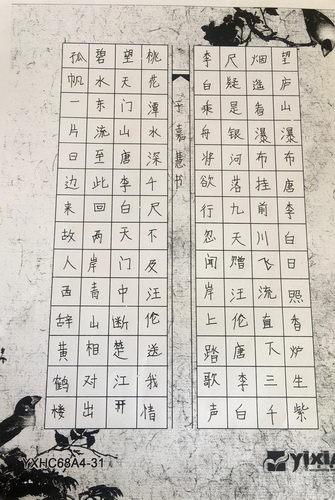 望庐山瀑布唐李白日照香炉生紫
烟遥看瀑布挂前川飞流直下三千
尺疑是银河落九天赠汪伦唐李白
李白乘舟将欲行忽闻岸上踏歌声
于嘉慧书
桃花潭水深千尺不及汪伦送我情
望天门山唐李白天门中断楚江开
碧水东流至此回两岸青山相对出
孤帆一片日边来故人西辞黄鹤楼
YXHC68A4-31